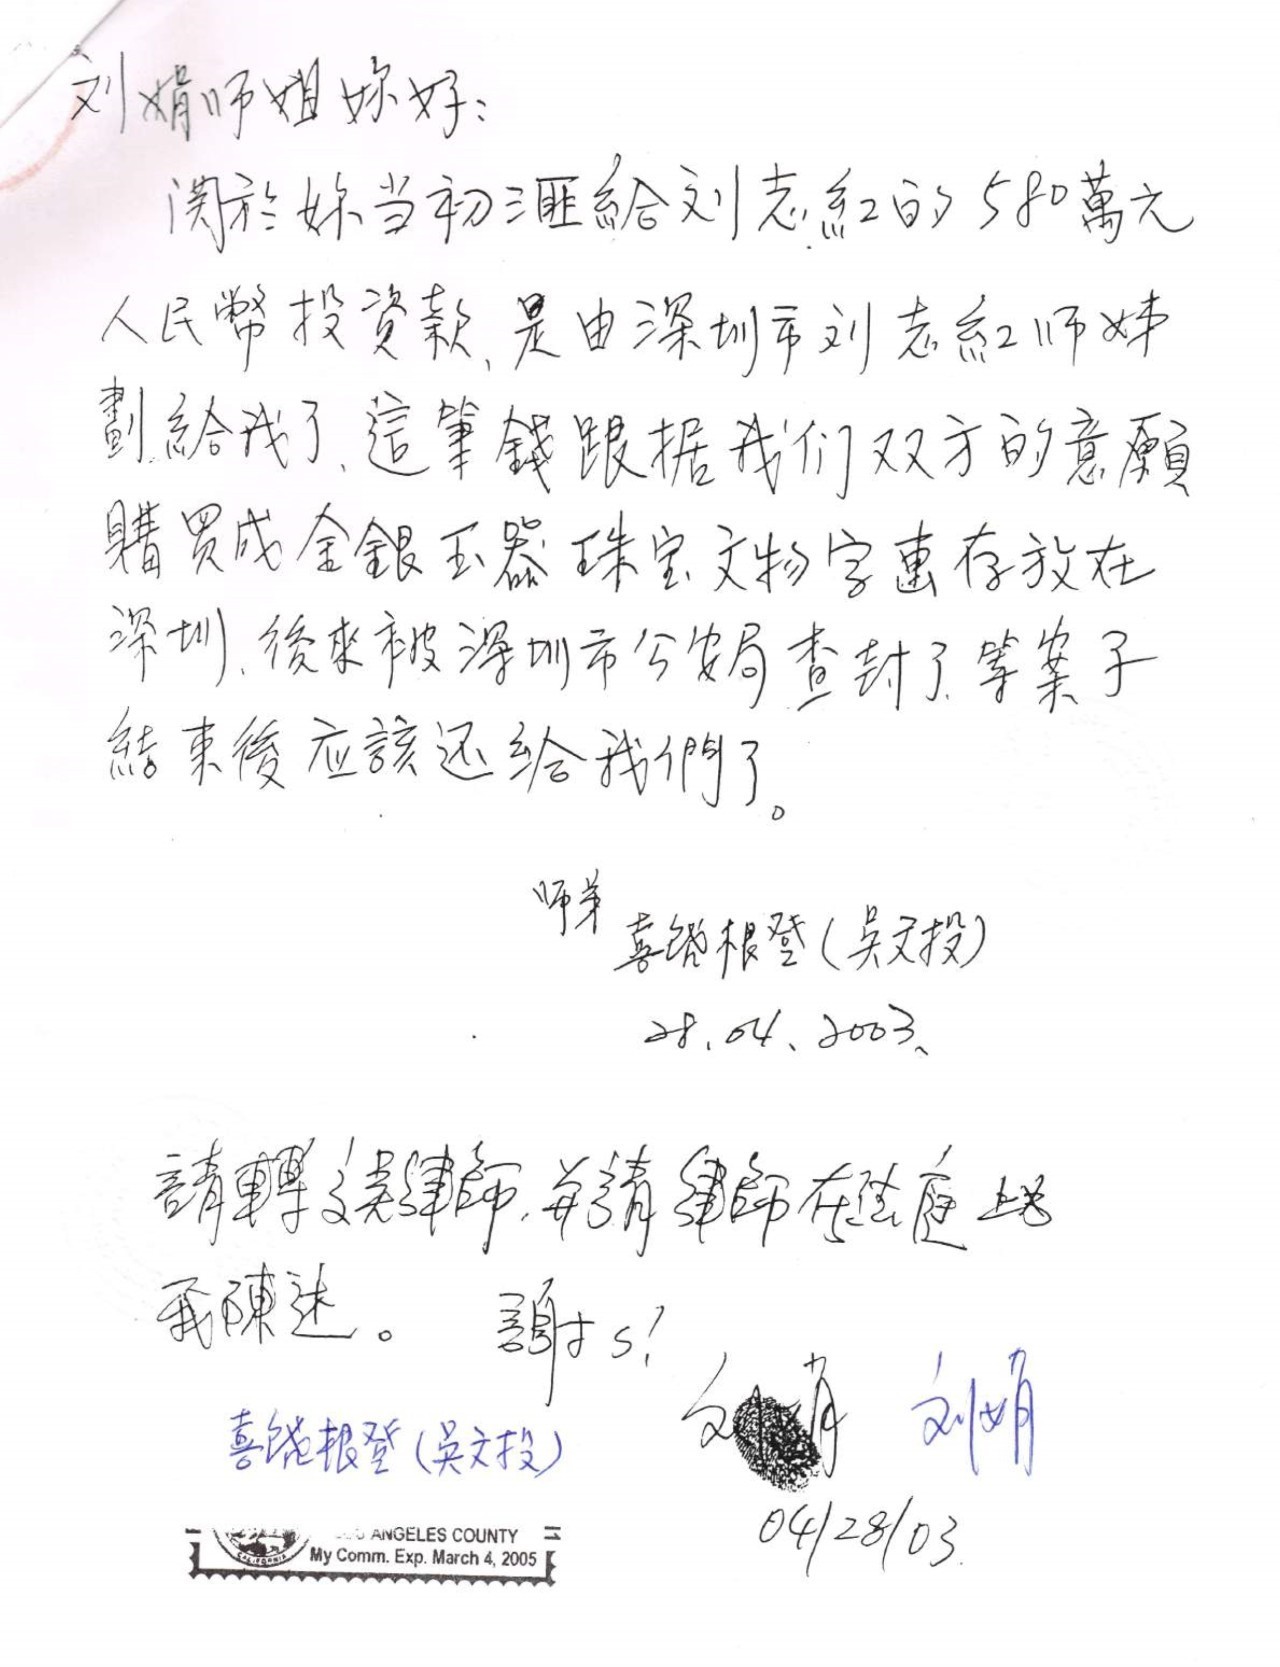 刘娟师姐妳好：
関於妳当初匯給刘志紅的580萬元
人民幣投資款、是由深圳市刘志紅师姊
劃給我了、這筆錢跟据我们双方的意願
購買成金銀玉器珠宝文物字画存放在
深圳、後來被深圳市公安局查封了、等案子
結束後应該还給我們了。
师弟
喜饒根登（吳文投）
28.04、2003、
請轉 律師，并請律師在法庭上
我陳述。 謝々！
刘娟 刘娟
喜饒根登（吳文投）
04/28/03.
ANGELES COUNTY
CALIFORNIA
My Comm. Exp. March 4, 2005